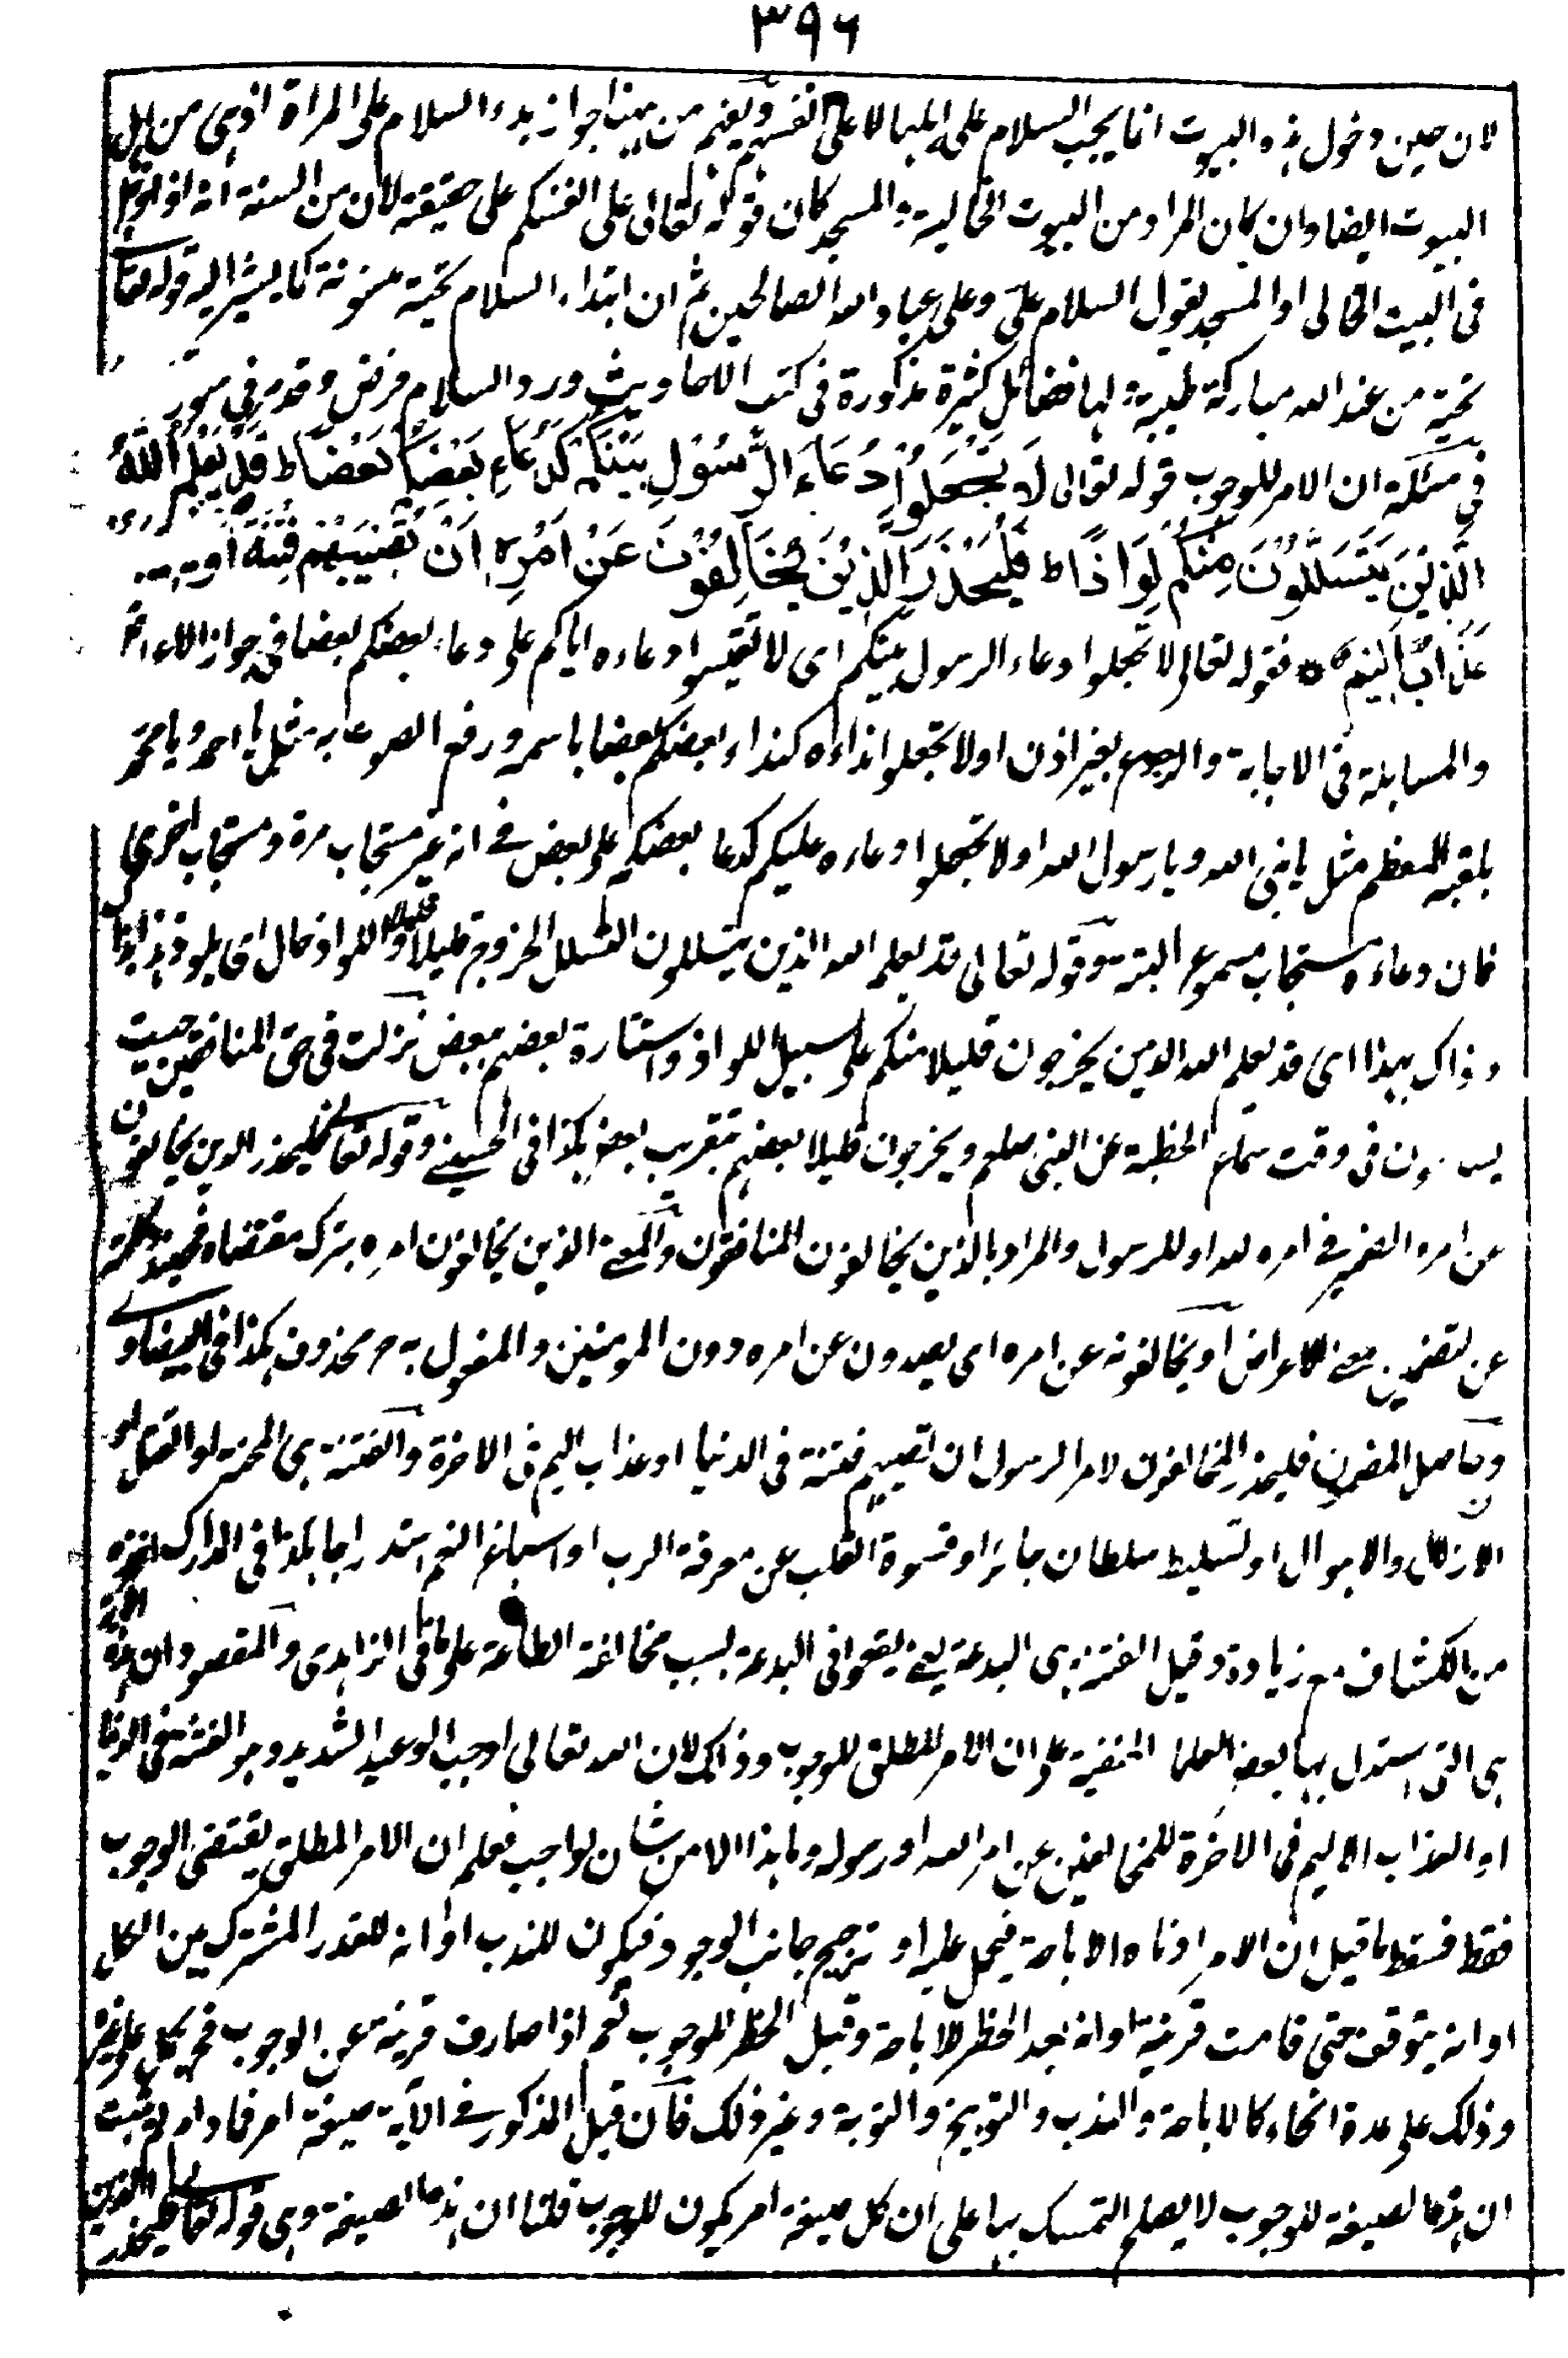 ٣٩٦
لان حين دخول هذه البيوت انما يجب السلام على اهلها لا على انفسهم ويفهم من ههنا جواز بدء السلام على المراة اذ هي من اهل
البيوت ايضا وان كان المراد من البيوت الخالية والمسجد كان قوله تعالى على انفسكم على حقيقته لان من السنة انه اذا دخل
في البيت الخالي او المسجد يقول السلام علىّ وعلى عباد الله الصالحين ثم ان ابتداء السلام تحية مسنونة كما يشير اليه قوله تعالى
تحية من عند الله مباركة طيبة ولها فضائل كثيرة مذكورة في كتب الاحاديث ورد السلام فرض وقد مر في سورة
في مسئلة ان الامر للوجوب قوله تعالى لَا تَجْعَلُوْا دُعَاءَ الرَّسُوْلِ بَيْنَكُمْ كَدُعَاءِ بَعْضِكُمْ بَعْضًا ط قَدْ يَعْلَمُ اللّٰهُ
الَّذِيْنَ يَتَسَلَّلُوْنَ مِنْكُمْ لِوَاذًا ط فَلْيَحْذَرِ الَّذِيْنَ يُخَالِفُوْنَ عَنْ اَمْرِهٖ اَنْ تُصِيْبَهُمْ فِتْنَةٌ اَوْ
عَذَابٌ اَلِيْمٌ فقوله تعالى لا تجعلوا دعاء الرسول بينكم اى لا تقيسوا دعاءه اياكم على دعاء بعضكم بعضا في جواز الاعراض
والمساهلة في الاجابة والرجوع بغير اذن اولا تجعلوا نداءه كنداء بعضكم بعضا باسمه ورفع الصوت به مثل يا احمد ويا محمد
بلقبه المعظم مثل يا نبى الله ويا رسول الله اولا تجعلوا دعاءه عليكم كدعا بعضكم على بعض في انه غير مستجاب مرة ومستجاب اخرى
فان دعاءه مستجاب مسموع البتة وقوله تعالى قد يعلم الله الذين يتسللون التسلل الخروج قليلا قليلا واللواذ حال اى يلوذ هذا بذاك
وذاك بهذا اى قد يعلم الله الذين يخرجون قليلا منكم على سبيل اللواذ واستتارة بعضهم ببعض نزلت في حق المنافقين حيث
في وقت سماع الخطبة عن النبى صلعم ويخرجون قليلا بعضهم بقرب بعض هكذا في الحسيني وقوله تعالى فليحذر الذين يخالفون
عن امره الضمير في امره لله او للرسول والمراد بالذين يخالفون المنافقون والمعنى الذين يخالفون امره بترك مقتضاه فحينئذ كلمة
عن لتضمين معنى الاعراض او يخالفونه عن امره اى يصدون عن امره دون المومنين والمفعول به محذوف هكذا في البيضاوي
وحاصل المضمون فليحذر المخالفون لامر الرسول ان تصيبهم فتنة في الدنيا او عذاب اليم في الاخرة والفتنة هى المحنة او القتل او
الزلازل والاهوال او تسليط سلطان جائر او قسوة القلب عن معرفة الرب او اسباغ النعم استدراجا هكذا في المدارك اخذه
من الكشاف مع زيادة وقيل الفتنة هى البدعة يعنى يقعوا في البدعة بسبب مخالفة الطاعة على ما في الزاهدى والمقصود ان هذه الاية
هى التى استدل بها بعض العلما الحنفية على ان الامر المطلق للوجوب وذلك لان الله تعالى اوجب الوعيد الشديد وهو الفتنة في الدنيا
او العذاب الاليم في الاخرة للمخالفين عن امر الله او رسوله وما هذا الا من شان الواجب فعلم ان الامر المطلق يقتضى الوجوب
فقط فسقط ما قيل ان الامر ادناه الاباحة فيحمل عليه او ترجيح جانب الوجود فيكون للندب او انه للقدر المشترك بين الكل
او انه يتوقف حتى قامت قرينة او انه بعد الحظر للاباحة وقبل الحظر للوجوب نعم اذا صارف قرينة عن الوجوب فح يحمل على غيره
وذلك على عدة انحاء كالاباحة والندب والتوبيخ والتوبة وغير ذلك فان قيل المذكور في الآية صيغة امر فما دام لم يثبت
ان هذه الصيغة للوجوب لا يصلح التمسك بها على ان كل صيغة امر يكون للوجوب قلنا ان هذه الصيغة وهى قوله تعالى فليحذر الذين